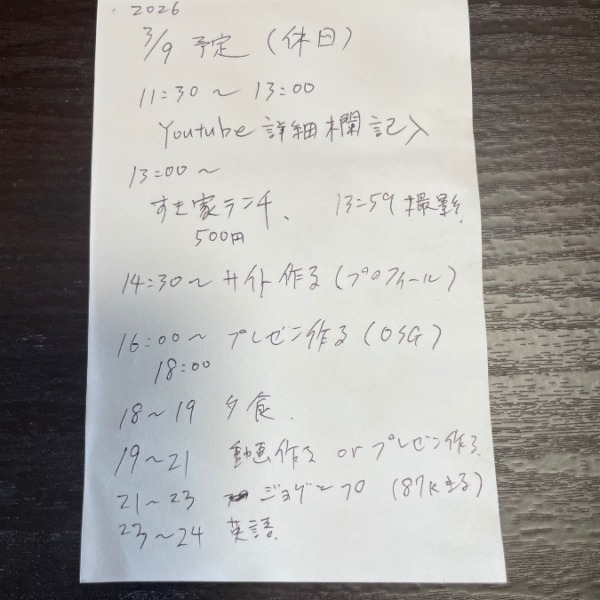 2026
3/9 予定 (休日)
11:30 〜 13:00
Youtube 詳細欄記入
13:00 〜
すき家ランチ、 13:59 撮影
500円
14:30〜 サイト作る (プロフィール)
16:00〜 プレゼン作る (OSG)
18:00
18〜19 夕食
19〜21 動画作る or プレゼン作る
21〜23 ジョギング フロ
23〜24 英語